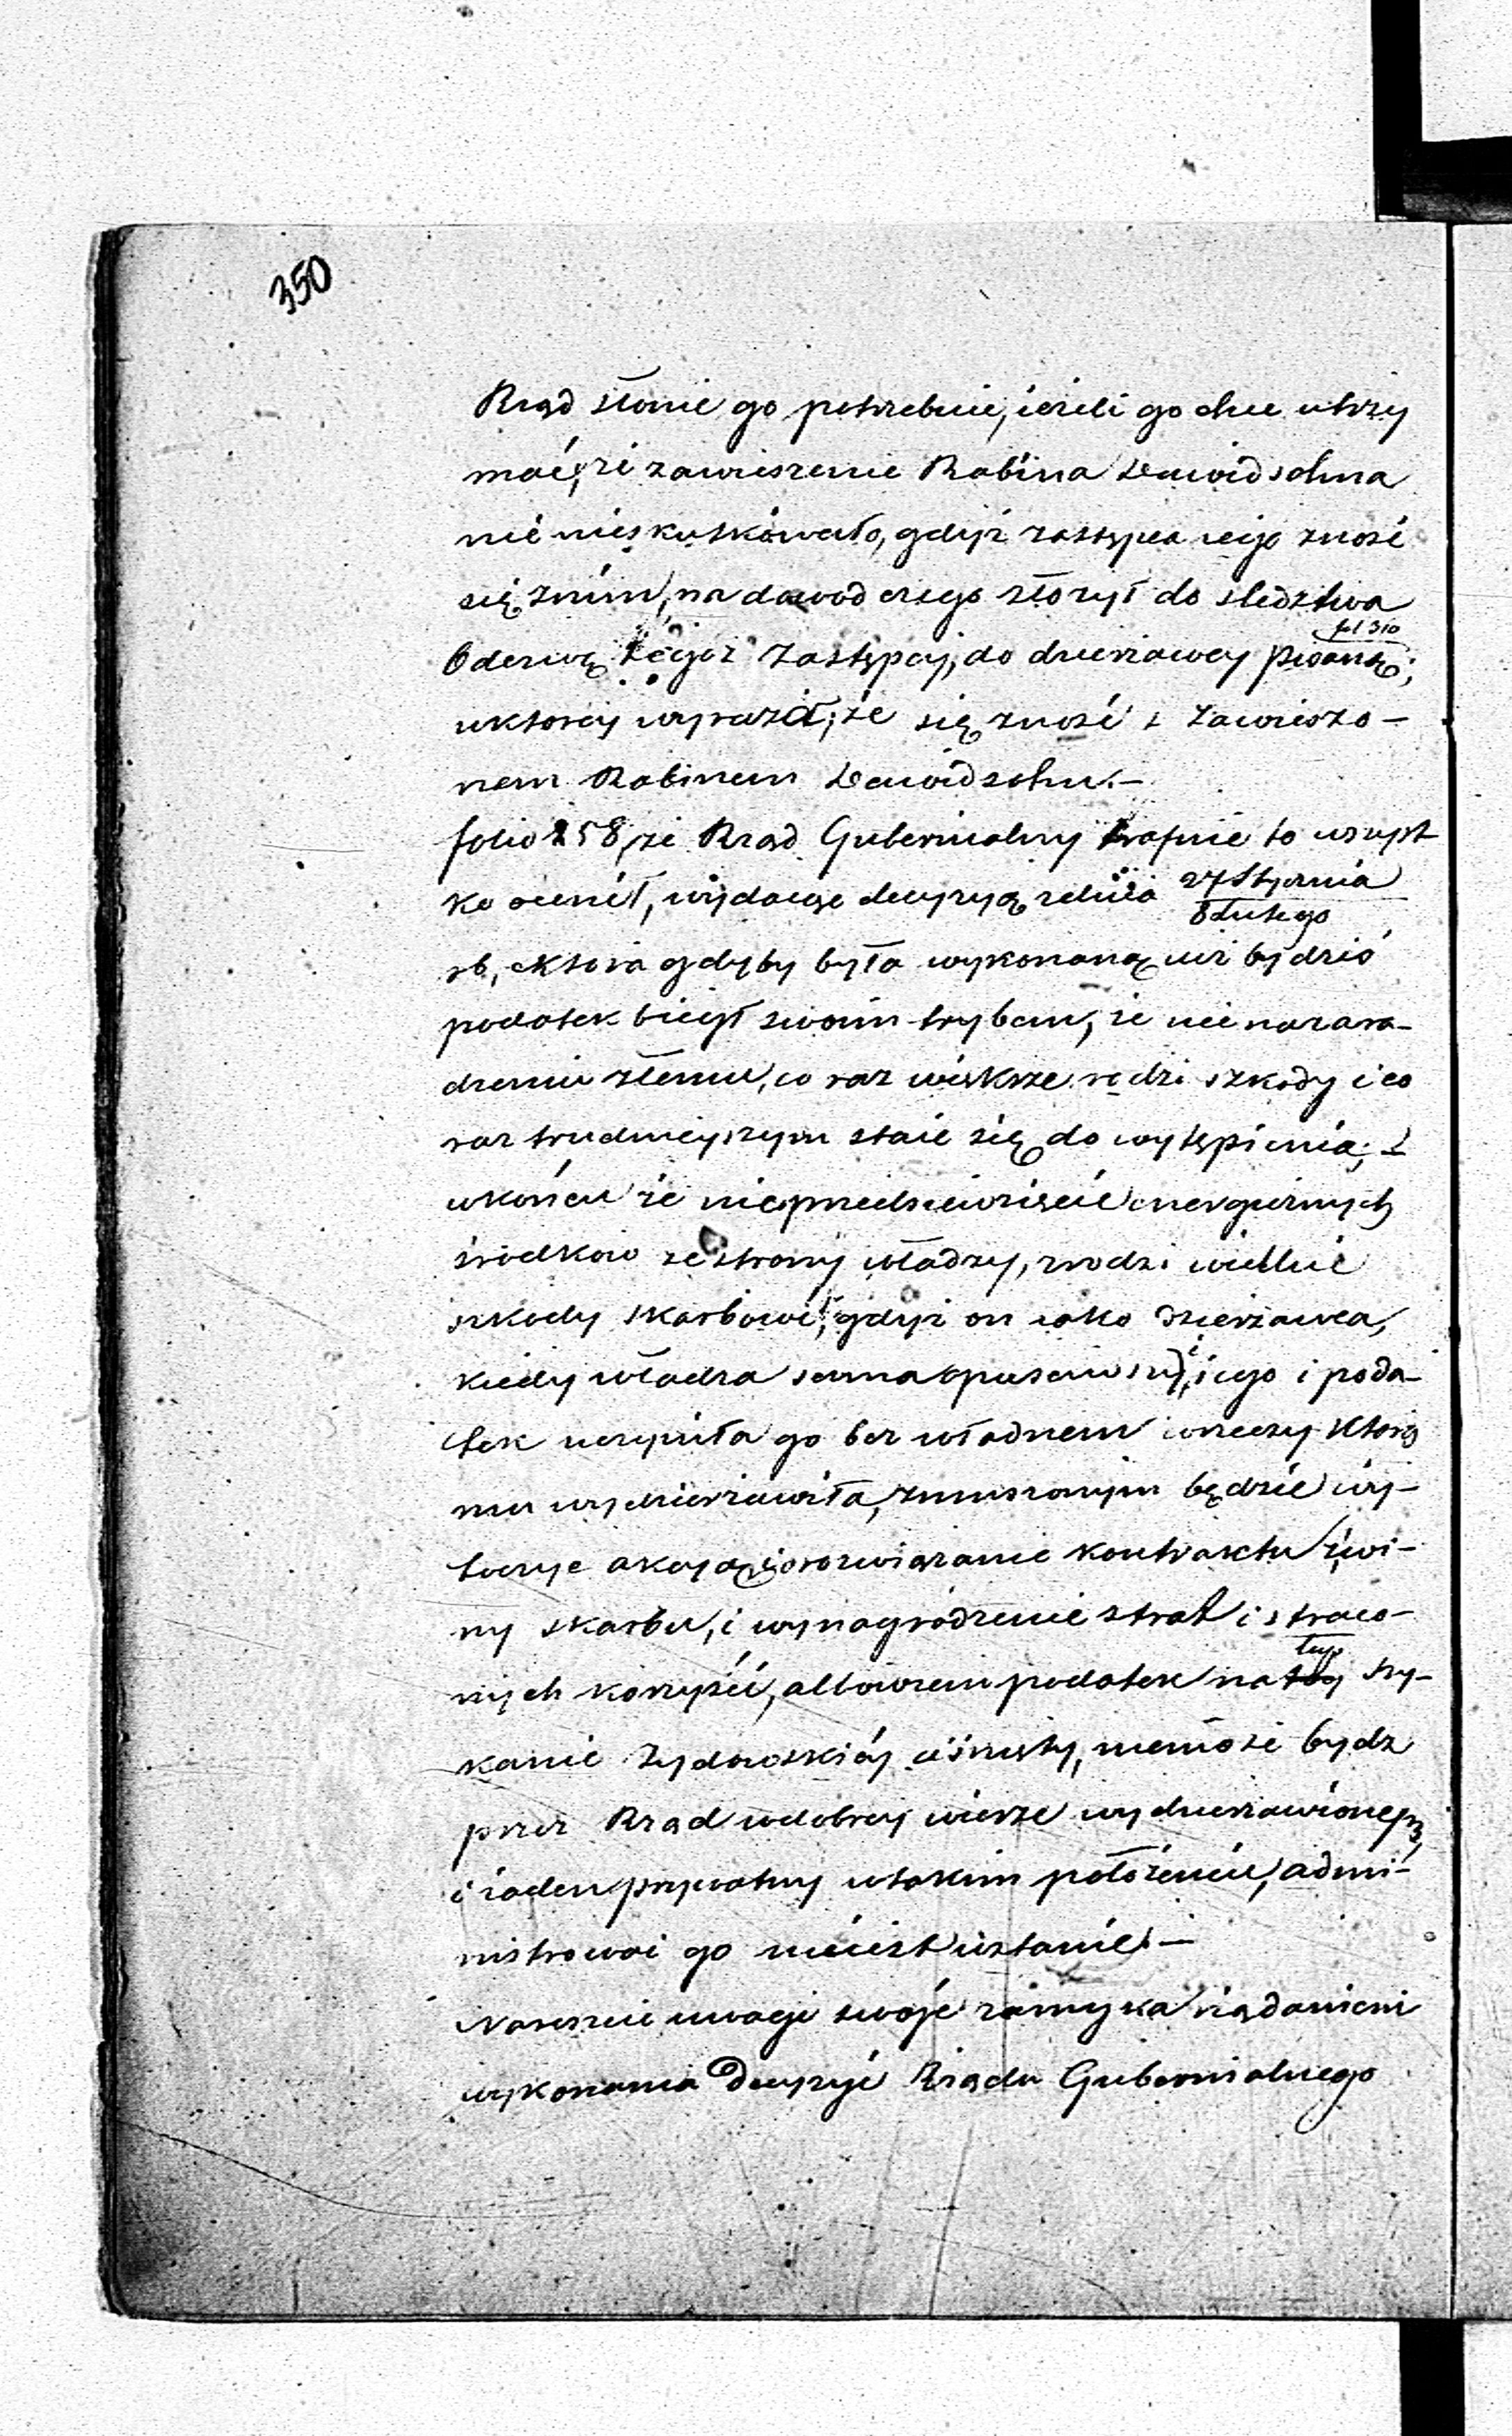 350
Rząd stonie go potrzebnie, ieżeli go chce utrzy
mać, że zawieszenie Rabina Dawidsohna
nic nieskutkowało, gdyż zastępca iego znosi
się znim, na dowod czego złożył do sledztwa
fol 310
Odezwę tegoż Zastępcy, do dzierżawcy pisaną;
wktorey wyraził, że się znosi z Zawieszo-
nem Rabinem Dawidsohn.-
folio 258, że Rząd Gubernialny trafnie to wszyst
ko ocenił, wydaiąc decyzyą zdnia 27 Stycznia
8 Lutego
rb, ktora gdyby była wykonaną iuż by dziś
podatek biegł swoim trybem, że nie narara-
dzeniu złemu, co raz większe rodzi szkody i co
raz trudnieyszym staie się do wytępienia; i
wkońcu że nieprzedsiewzięcie energicznych
środkow ze strony władzy, zrodzi wielkie
szkody skarbowi, gdyż on iako Dzierżawca,
kiedy władza sama opuściwszy iego i poda-
tek uczyniła go bez władnem wrzeczy którą
mu wydzierżawiła, zmuszonym będzie wy-
toczyć akcyą o rozwiązanie kontraktu zwi-
ny skarbu, i wynagrodzenie strat i straco-
nych korzyści, albowiem podatek na tęy szy-
kanie Żydowskiéy ciśnięty, niemoże bydz
przez Rząd wdobrey wierze wydzierżawionem,
i żaden prywatny wtakim położeniu, admi-
nistrować go nieiest wstanie.-
Nareszcie uwagi swoje zamyka żądaniem
wykonania Decyzyi Rządu Gubernialnego